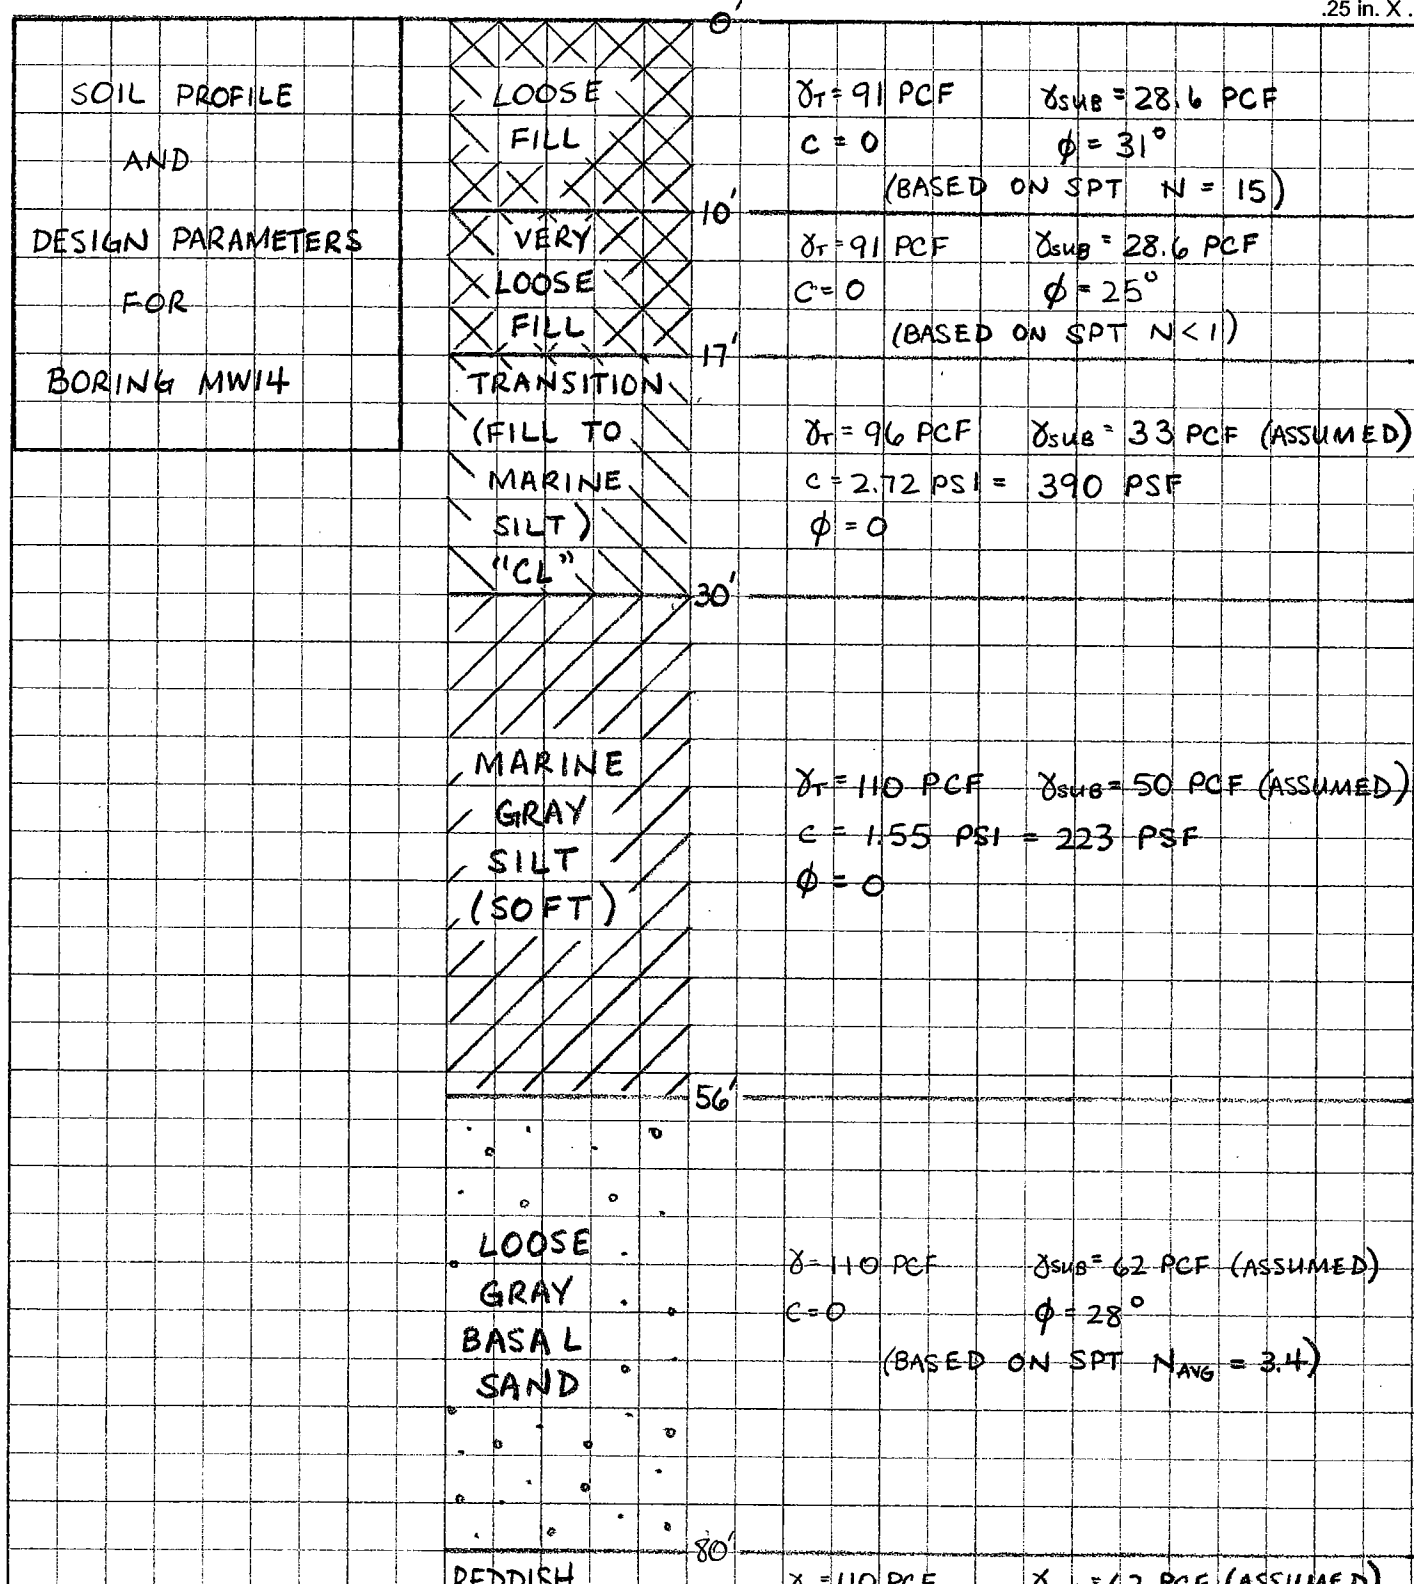 .25 in. X .
SOIL PROFILE
AND
DESIGN PARAMETERS
FOR
BORING MW14
0'
LOOSE
FILL
γT = 91 PCF γSUB = 28.6 PCF
C = 0 φ = 31°
(BASED ON SPT N = 15)
10'
VERY
LOOSE
FILL
γT = 91 PCF γSUB = 28.6 PCF
C = 0 φ = 25°
(BASED ON SPT N < 1)
17'
TRANSITION
(FILL TO
MARINE
SILT)
"CL"
γT = 96 PCF γSUB = 33 PCF (ASSUMED)
C = 2.72 PSI = 390 PSF
φ = 0
30'
MARINE
GRAY
SILT
(SOFT)
γT = 110 PCF γSUB = 50 PCF (ASSUMED)
C = 1.55 PSI = 223 PSF
φ = 0
56'
LOOSE
GRAY
BASAL
SAND
γ = 110 PCF γSUB = 62 PCF (ASSUMED)
C = 0 φ = 28°
(BASED ON SPT NAVG = 3.4)
80'
REDDISH
γ = 110 PCF γ = 62 PCF (ASSUMED)